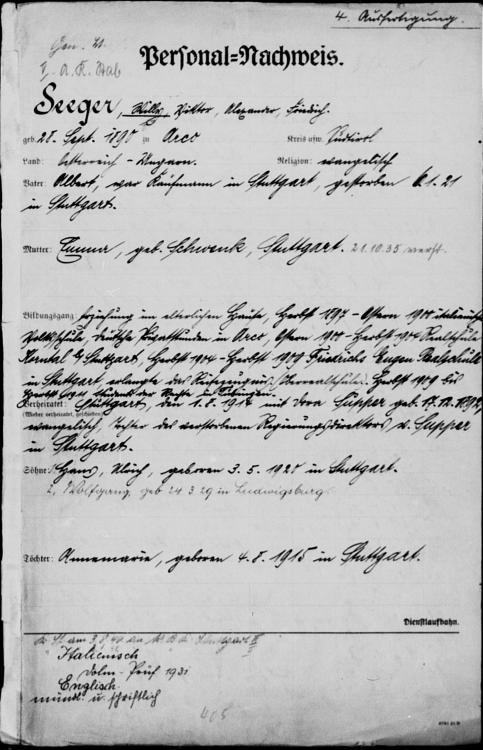 4. Ausfertigung.
Gen. St.
V. A. K. Stab
Personal-Nachweis.
Seeger, Willy, Viktor, Alexander, Friedrich.
geb. 28. Sept. 1890 zu Arco Kreis usw. Südtirol
Land: Österreich-Ungarn. Religion: evangelisch
Vater: Albert, war Kaufmann in Stuttgart, gestorben 6.1.21
in Stuttgart.
Mutter: Emma, geb. Schwenk, Stuttgart. 21.10.35 verst.
Bildungsgang: Erziehung im elterlichen Hause, Herbst 1897 - Ostern 1900 italienische
Volksschule, deutsche Privatstunden in Arco, Ostern 1900 - Herbst 1904 Realschule
Korntal b/ Stuttgart, Herbst 1904 - Herbst 1909 Friedrichs Eugen Realschule
in Stuttgart, erlangte das Reifezeugnis Oberrealschule. Herbst 1909 bis
Herbst 1911 Student der Rechte in Tübingen.
Verheiratet: Stuttgart, den 1.8.1914 mit Dora Supper geb. 17.12.1892,
(Weder verheiratet, geschieden)
evangelisch, Tochter des verstorbenen Regierungsdirektors v. Supper
in Stuttgart.
Söhne: Hans, Ulrich, geboren 3.5.1920 in Stuttgart.
2, Wolfgang, geb 24.3.29 in Ludwigsburg.
Töchter: Annemarie, geboren 4.8.1915 in Stuttgart.
Dienstlaufbahn.
am 3.8.40 an W.B.K. Stuttgart II
Italienisch
Dolm-Prüf 1931
Englisch
mündl. u. schriftlich
405